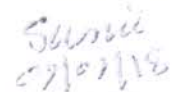 Sunil
07/07/18